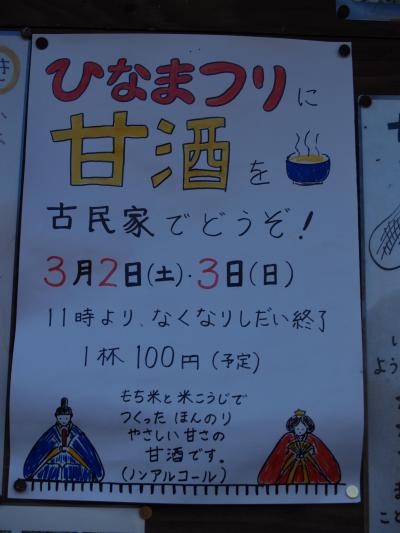 ひなまつりに
甘酒を
古民家でどうぞ!
3月2日(土)・3日(日)
11時より、なくなりしだい終了
1杯 100円(予定)
もち米と米こうじで
つくった ほんのり
やさしい甘さの
甘酒です。
(ノンアルコール)